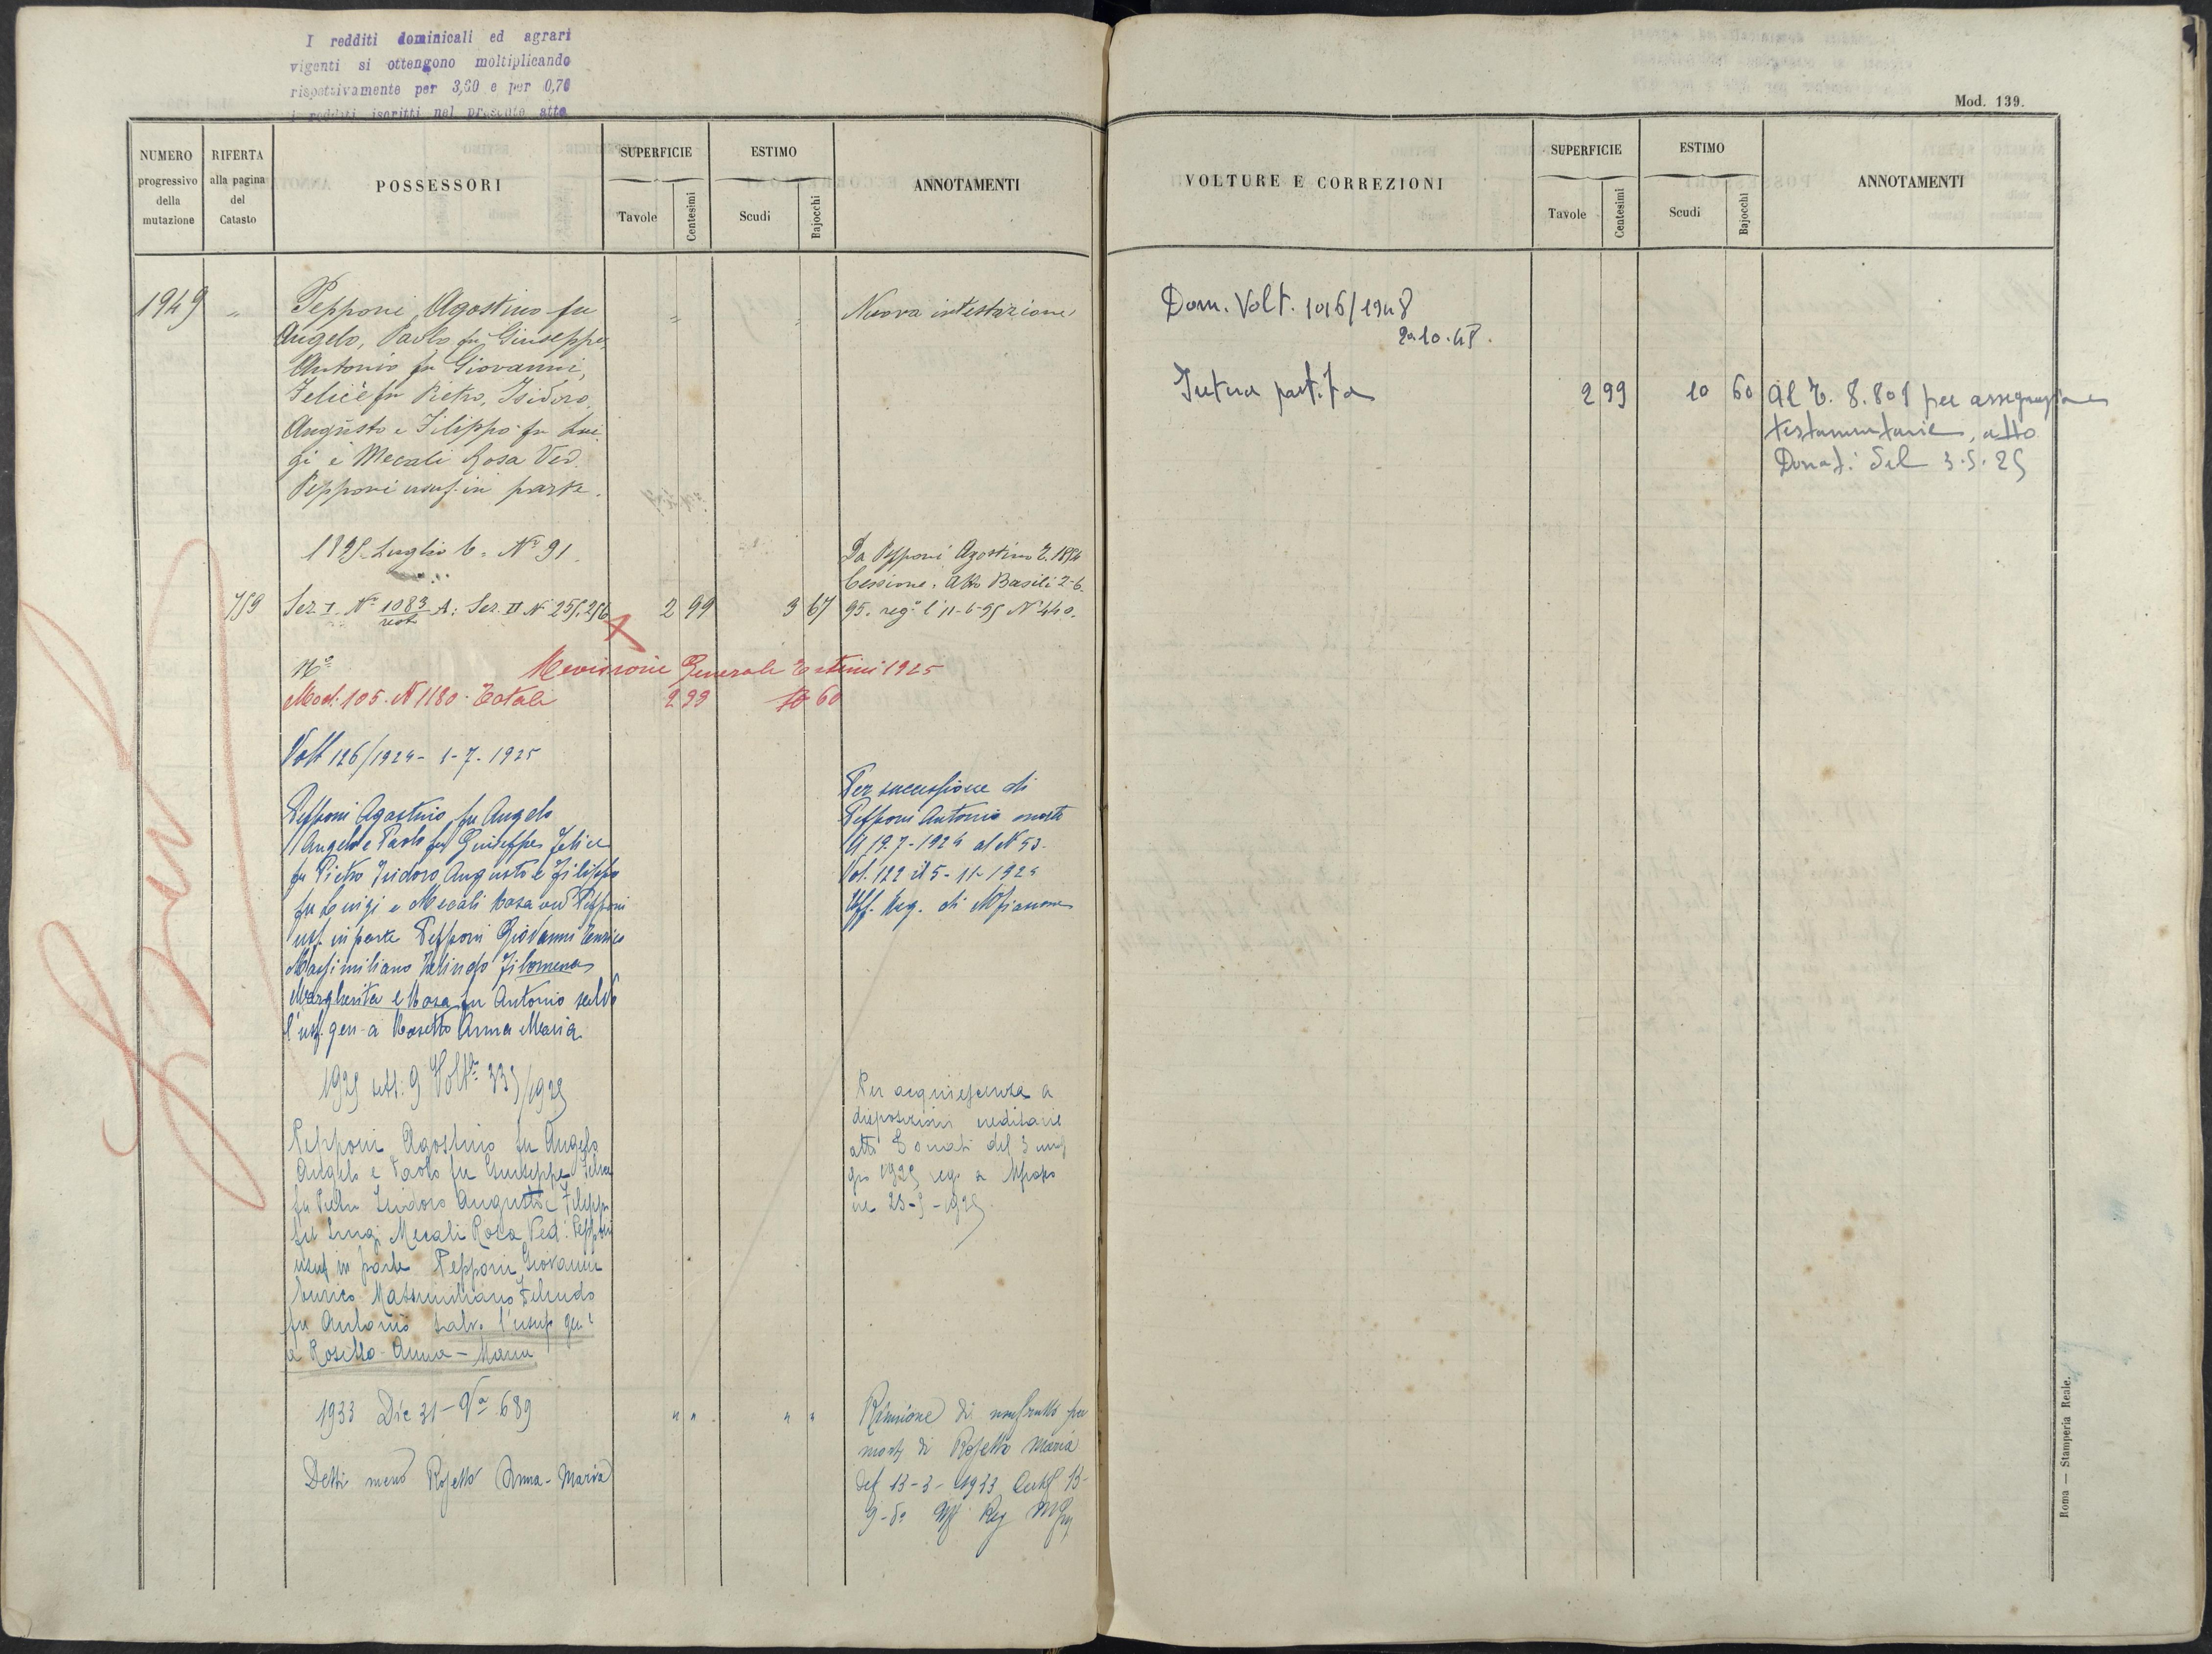 I redditi dominicali ed agrari
vigenti si ottengono moltiplicando
rispettivamente per 3,60 e per 0,70
i redditi iscritti nel presente atto
NUMERO
progressivo
della
mutazione
RIFERTA
alla pagina
del
Catasto
POSSESSORI
SUPERFICIE
Tavole
Centesimi
ESTIMO
Scudi
Bajocchi
ANNOTAMENTI
1949 " Pepponi Agostino fu " " Nuova intestazione
Angelo, Paolo fu Giuseppe,
Antonio fu Giovanni,
Felice fu Pietro, Isidoro,
Augusto e Filippo fu Lui
gi e Mecali Rosa Ved.
Pepponi usuf. in parte.
1895 Luglio 6. Nº 91.
Da Pepponi Agostino
Cessione. Atto Basili 2-6
759 Sez. I. Nº 1083 rest A: Sez. II N. 255, 256 2 99 3 67 95. reg. l'11-6-95 Nº 440.
Nº Revisione Generale Estimi 1925
Mod. 105. N 1180. Totale 2 99 10 60
Volt 126/1924 - 1-7-1925
Pepponi Agostino fu Angelo
Angelo e Paolo fu Giuseppe Felice
fu Pietro Isidoro Augusto e Filippo
fu Luigi e Mecali Rosa ved Pepponi
usf. in parte Pepponi Giovanni Enrico
Massimiliano Zelindo Filomena
Margherita e Rosa fu Antonio salvo
l'usf. gen. a Rosetto Anna Maria
Per successione di
Pepponi Antonio morto
il 19.7-1924 al N 53.
Vol. 122 il 5-11-1924
Uff. Reg. di
1925 sett: 9 Voltª 335/1925
Pepponi Agostino fu Angelo
Angelo e Paolo fu Giuseppe Felice
fu Pietro Isidoro Augusto e Filippo
fu Luigi Mecali Rosa Ved. Pepponi
usuf in parte Pepponi Giovanni
Enrico Massimiliano Zelindo
fu Antonio salvo l'usuf gen.
a Rosetto Anna-Maria
Per acquiescenza a
disposizioni ereditarie
atto Donati del 3 mag
gio 1925 reg. a
ne 23-5-1925
1933 Dic 31 - Vª 689 " " " "
Detti meno Rosetto Anna-Maria
Riunione di usufrutto per
morte di Rosetto Maria
def 13-3-1933 Certif 13-
9-dº Uff Reg
Mod. 139.
VOLTURE E CORREZIONI
SUPERFICIE
Tavole
Centesimi
ESTIMO
Scudi
Bajocchi
ANNOTAMENTI
Dom. Volt. 1016/1948
20.10.48.
Intera partita 2 99 10 60 Al T. 8.801 per assegnazione
testamentarie, atto
Donati del 3.5.25
Roma — Stamperia Reale.